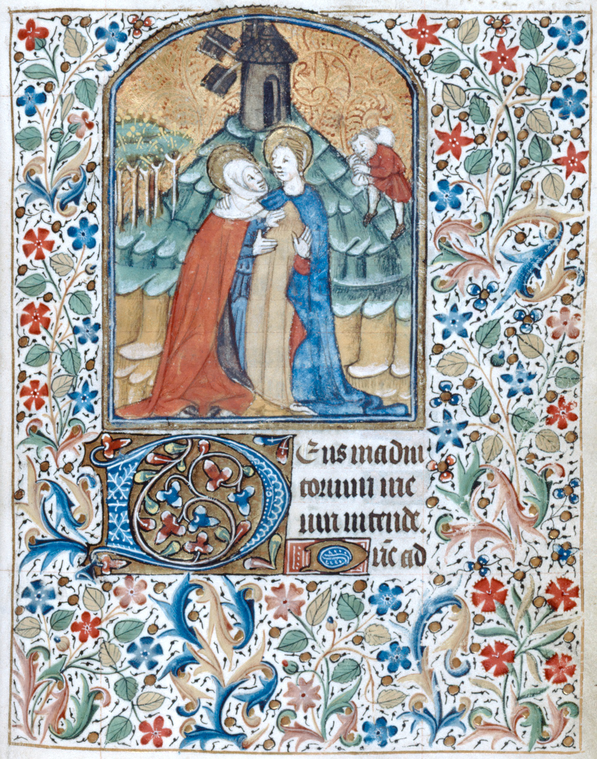 DEus in adiu
torium me
um intende.
Dñe ad